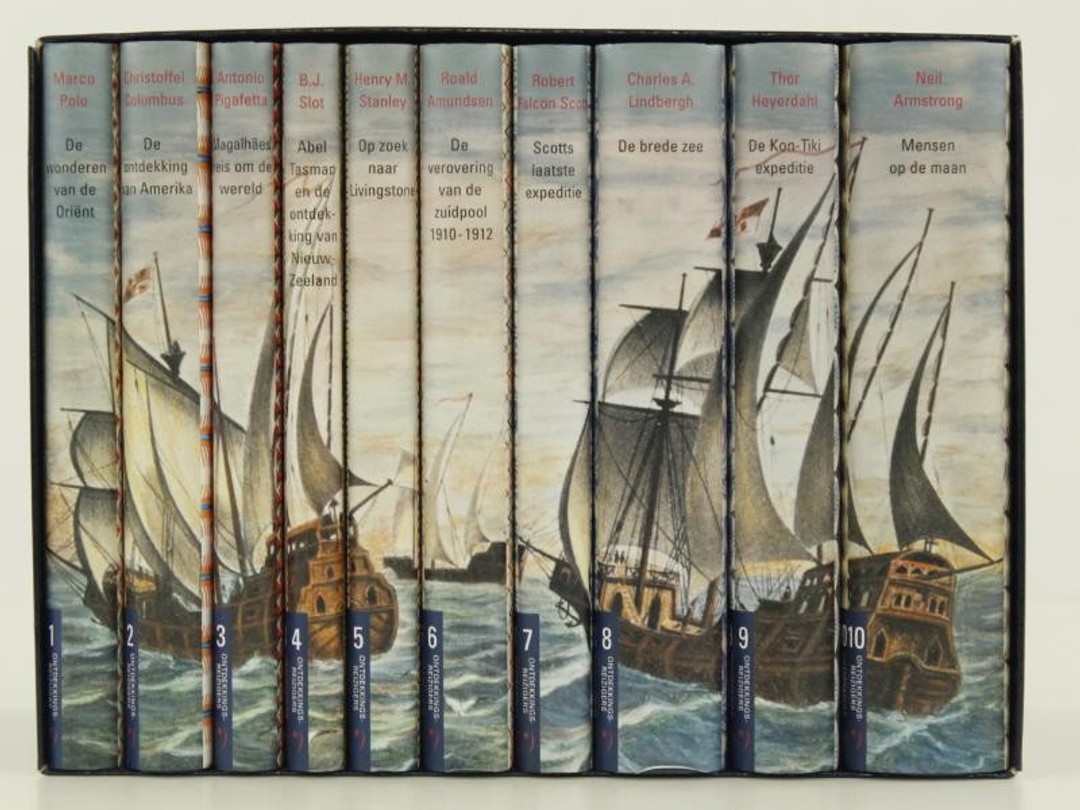 Marco
Polo
De
wonderen
van de
Oriënt
1
ONTDEKKINGS-
Christoffel
Columbus
De
ontdekking
van Amerika
2
ONTDEKKINGS-
REIZIGERS
Antonio
Pigafetta
Magalhães
reis om de
wereld
3
ONTDEKKINGS-
REIZIGERS
B.J.
Slot
Abel
Tasman
en de
ontdek-
king van
Nieuw-
Zeeland
4
ONTDEKKINGS-
REIZIGERS
Henry M.
Stanley
Op zoek
naar
Livingstone
5
ONTDEKKINGS-
REIZIGERS
Roald
Amundsen
De
verovering
van de
zuidpool
1910-1912
6
ONTDEKKINGS-
REIZIGERS
Robert
Falcon Scott
Scotts
laatste
expeditie
7
ONTDEKKINGS-
REIZIGERS
Charles A.
Lindbergh
De brede zee
8
ONTDEKKINGS-
REIZIGERS
Thor
Heyerdahl
De Kon-Tiki
expeditie
9
ONTDEKKINGS-
REIZIGERS
Neil
Armstrong
Mensen
op de maan
10
ONTDEKKINGS-
REIZIGERS